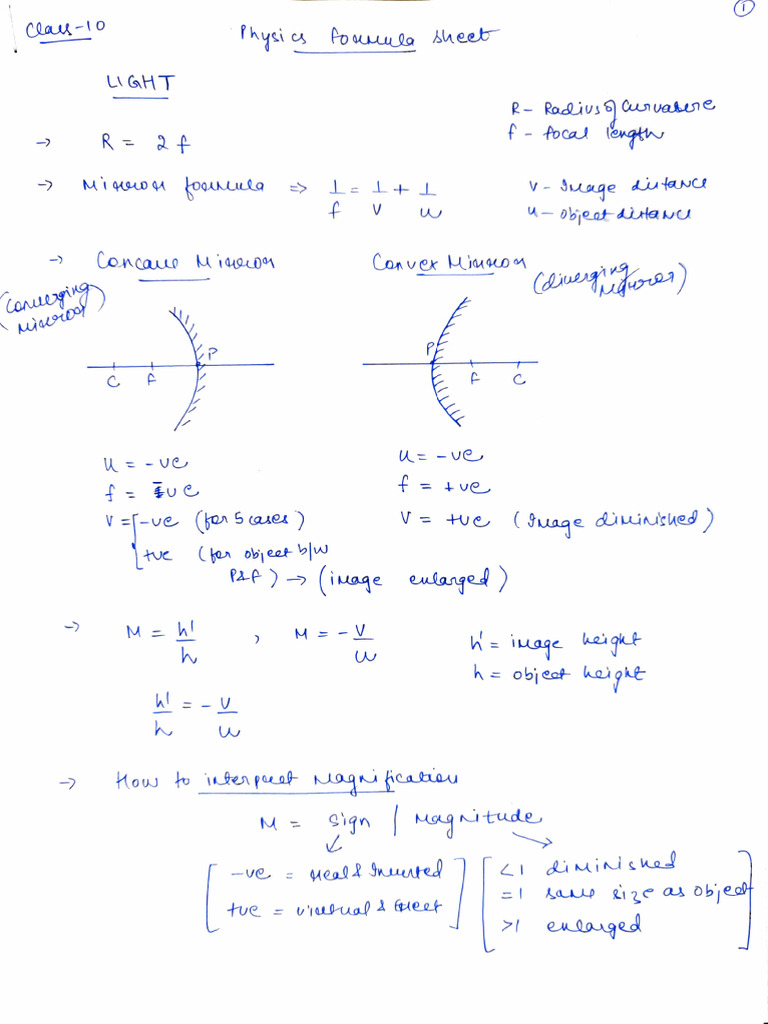 1
Class-10
Physics formula sheet
LIGHT
→ R = 2f
R - Radius of Curvature
f - focal length
→ Mirror formula ⇒ 1/f = 1/v + 1/u
v - Image distance
u - object distance
→ Concave Mirror
Convex Mirror
(converging mirror)
(diverging mirror)
P
C F
P
F C
u = -ve
f = -ve
v = -ve (for 5 cases)
+ve (for object b/w
P&F) → (image enlarged)
u = -ve
f = +ve
v = +ve (Image diminished)
→ M = h'/h , M = -v/u
h' = image height
h = object height
h'/h = -v/u
→ How to interpret Magnification
M = Sign | Magnitude
-ve = real & Inverted
+ve = virtual & Erect
<1 diminished
=1 same size as object
>1 enlarged